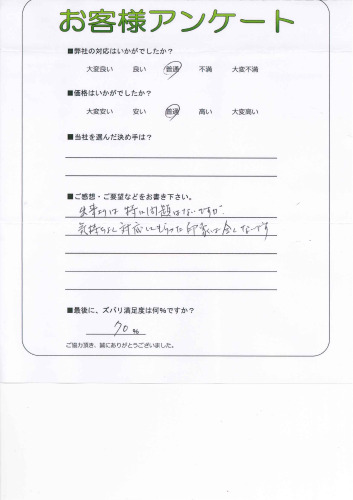 お客様アンケート
■弊社の対応はいかがでしたか？
大変良い 良い 普通 不満 大変不満
■価格はいかがでしたか？
大変安い 安い 普通 高い 大変高い
■当社を選んだ決め手は？
■ご感想・ご要望などをお書き下さい。
出来がは 特に問題はないですが
気持よく対応してもらった印象は全くないです
■最後に、ズバリ満足度は何%ですか？
70 %
ご協力頂き、誠にありがとうございました。